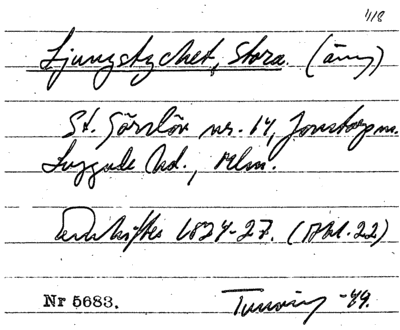 418
Ljungstycket, Stora. (äng)
St. Görslöv nr. 14, Jonstorp sn.
Luggude hd., Mlm.
Enskiftes 1824-27. (Akt. 22)
Nr 5683.
-49.